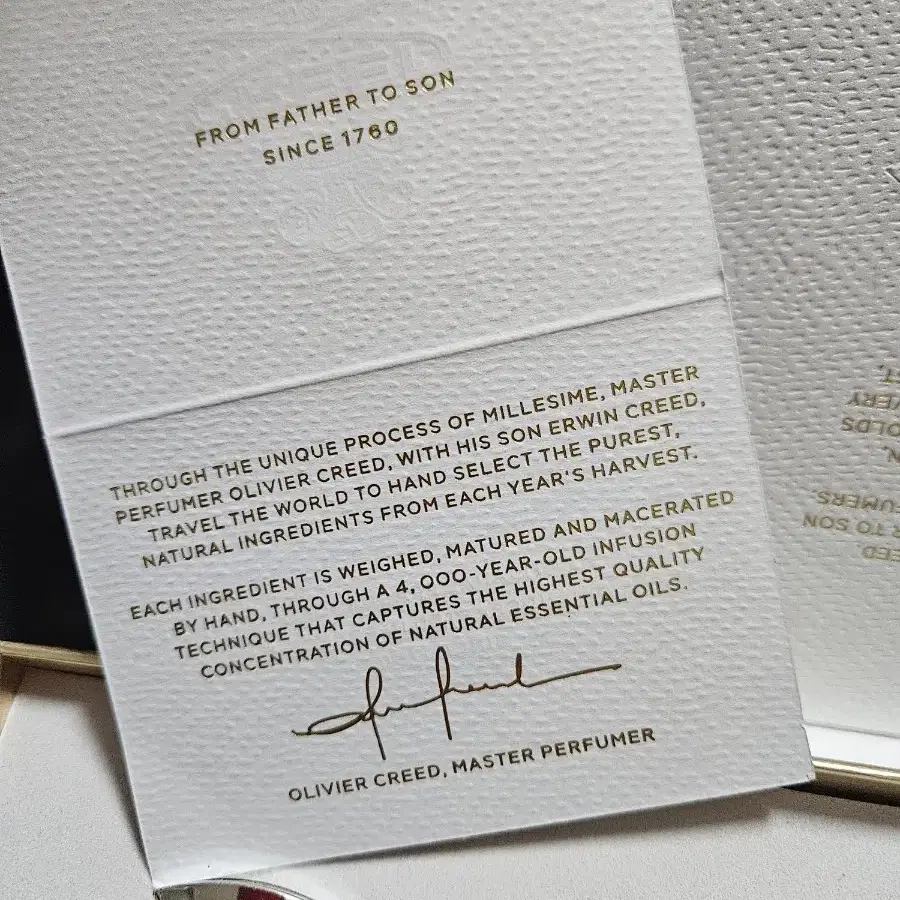 FROM FATHER TO SON
SINCE 1760
THROUGH THE UNIQUE PROCESS OF MILLESIME, MASTER
PERFUMER OLIVIER CREED, WITH HIS SON ERWIN CREED,
TRAVEL THE WORLD TO HAND SELECT THE PUREST,
NATURAL INGREDIENTS FROM EACH YEAR'S HARVEST.
EACH INGREDIENT IS WEIGHED, MATURED AND MACERATED
BY HAND, THROUGH A 4,000-YEAR-OLD INFUSION
TECHNIQUE THAT CAPTURES THE HIGHEST QUALITY
CONCENTRATION OF NATURAL ESSENTIAL OILS.
OLIVIER CREED, MASTER PERFUMER
TO SON